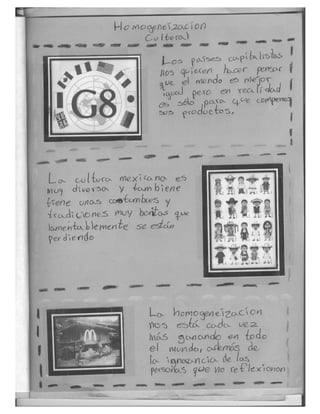 Homogeneizacion
Cultural
Los países capitalistas
nos quieren hacer pensar
que el mundo es mejor
igual pero en realidad
es sólo para que compremos
sus productos.
G8
La cultura mexicana es
muy diversa y tambiene
tiene unas costumbres y
tradiciones muy bonitas que
lamentablemente se están
perdiendo
La homogeneizacion
nos está cada vez
más ganando en todo
el mundo, además de
la ignorancia de las
personas que no reflexionan